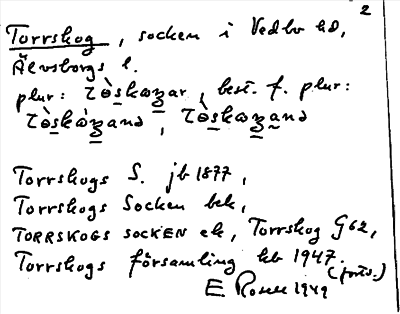 2
Torrskog, socken i Vedbo hd,
Älvsborgs l.
plur: best. f. plur:
Torrskogs S. jb 1877,
Torrskogs Socken bek,
TORRSKOGS SOCKEN ek, Torrskog G62,
Torrskogs församling kb 1947.
(forts.)
E 1949